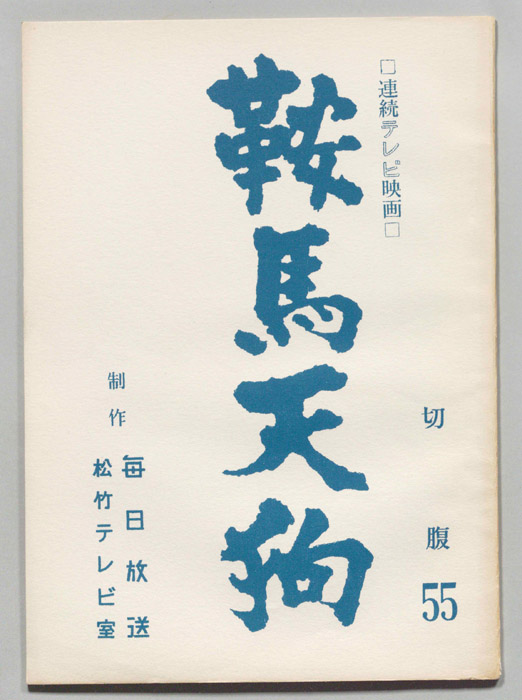 切腹 55
□連続テレビ映画□
鞍馬天狗
制作
毎日放送
松竹テレビ室